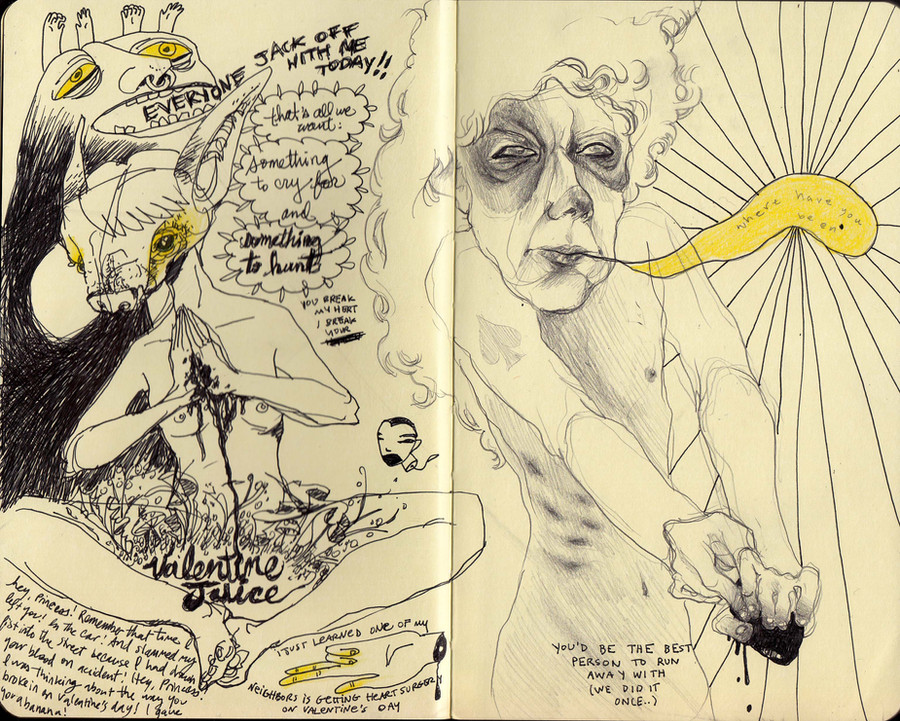 EVERYONE
JACK OFF
WITH ME
TODAY!!
that's all we
want:
something
to cry for
and
something
to hunt
YOU BREAK
MY HERT
I BREAK
YOUR
Valentine
Juice
hey, Princess! Remember that time I
left you! In the car! And slammed my
fist into the street because I had drawn
your blood on accident! Hey, Princess!
I was thinking about the way you
broke in on Valentine's day! I gave
you a banana!
I JUST LEARNED ONE OF MY
NEIGHBORS IS GETTING HEART SURGERY
ON VALENTINE'S DAY
where have you
been
YOU'D BE THE BEST
PERSON TO RUN
AWAY WITH
(WE DID IT
ONCE..)